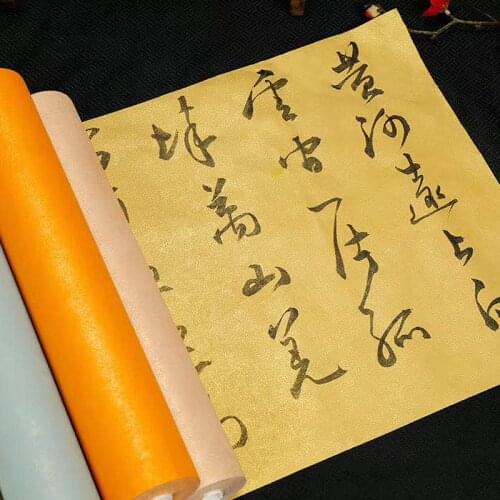 黄河遠上白
雲間一片孤
城萬山羌